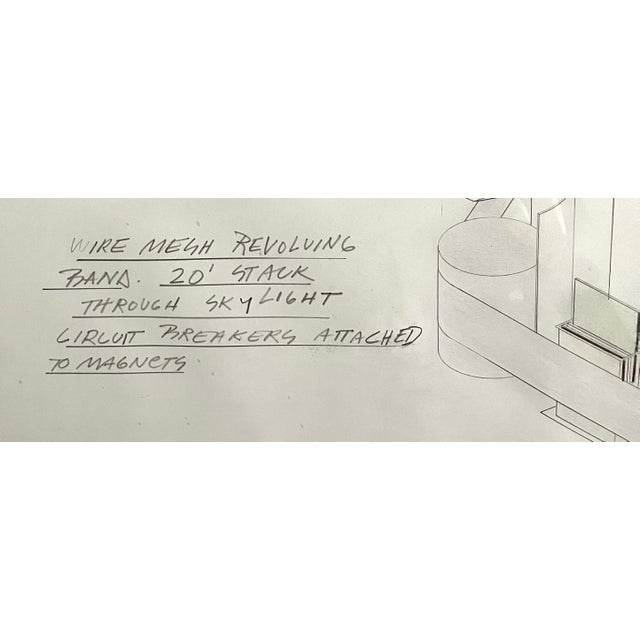 WIRE MESH REVOLVING
BAND. 20' STACK
THROUGH SKYLIGHT
CIRCUIT BREAKERS ATTACHED
TO MAGNETS